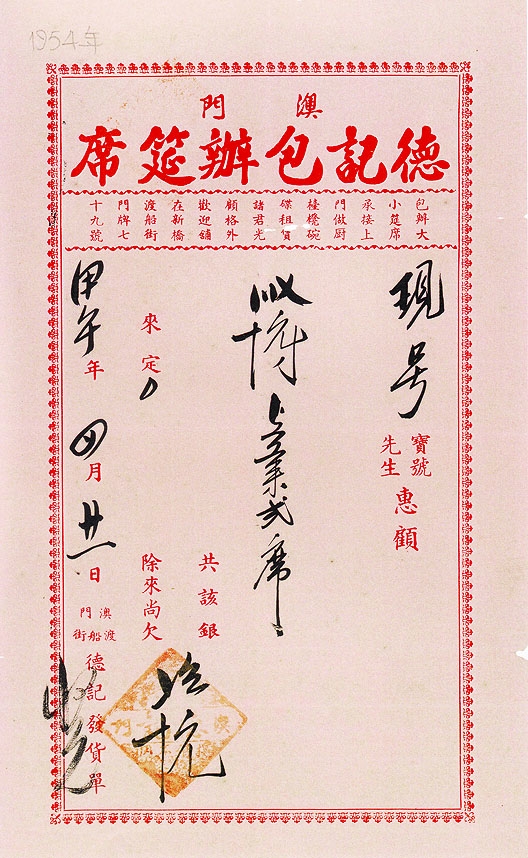 1954年
澳門
德記包辦筵席
包辦大
小筵席
承接上
門做廚
檯櫈碗
碟租賃
諸君光
顧格外
歡迎舖
在新橋
渡船街
門牌七
十九號
現号
寶號
先生
惠顧
式席
共該銀
來定
除來尚欠
甲午年四月廿一日
澳門
渡船街
德記發貨單